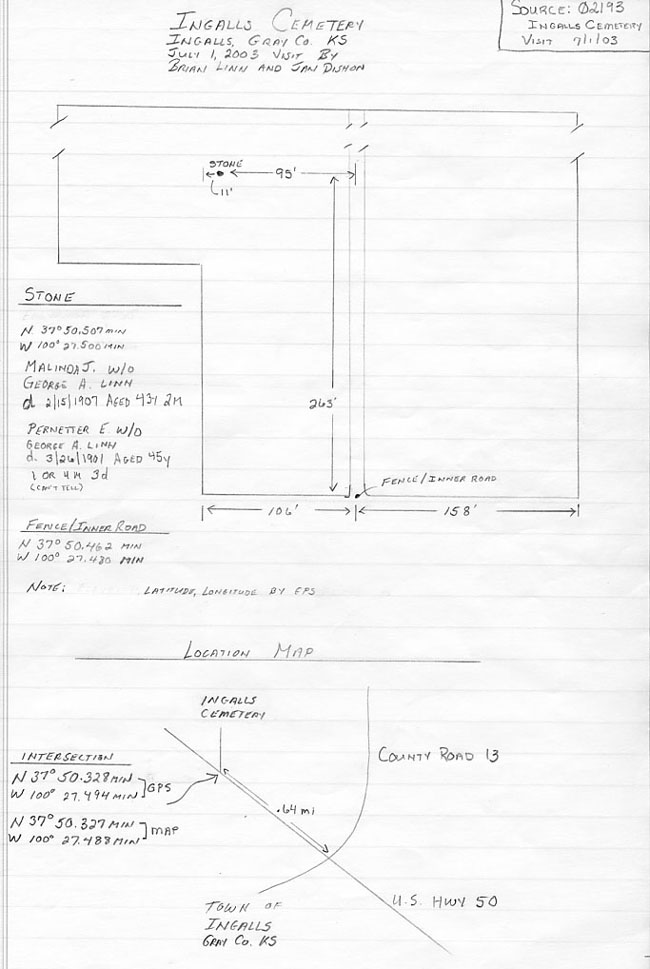 INGALLS CEMETERY
INGALLS, GRAY CO. KS
JULY 1, 2003 VISIT BY
BRIAN LINN AND JAN DISHON
SOURCE: 02193
INGALLS CEMETERY
VISIT 7/1/03
STONE
95'
11'
263'
STONE
N 37° 50.507 MIN
W 100° 27.500 MIN
MALINDA J. W/O
GEORGE A. LINN
d 2/15/1907 AGED 43Y 2M
PERNETTER E. W/O
GEORGE A. LINN
d. 3/26/1901 AGED 45y
1 OR 4 M 3d
(CAN'T TELL)
FENCE/INNER ROAD
106'
158'
FENCE/INNER ROAD
N 37° 50.462 MIN
W 100° 27.480 MIN
NOTE: LATITUDE, LONGITUDE BY GPS
LOCATION MAP
INGALLS
CEMETERY
COUNTY ROAD 13
INTERSECTION
N 37° 50.328 MIN
W 100° 27.494 MIN
GPS
.64 mi
N 37° 50.327 MIN
W 100° 27.488 MIN
MAP
U.S. HWY 50
TOWN OF
INGALLS
GRAY CO. KS